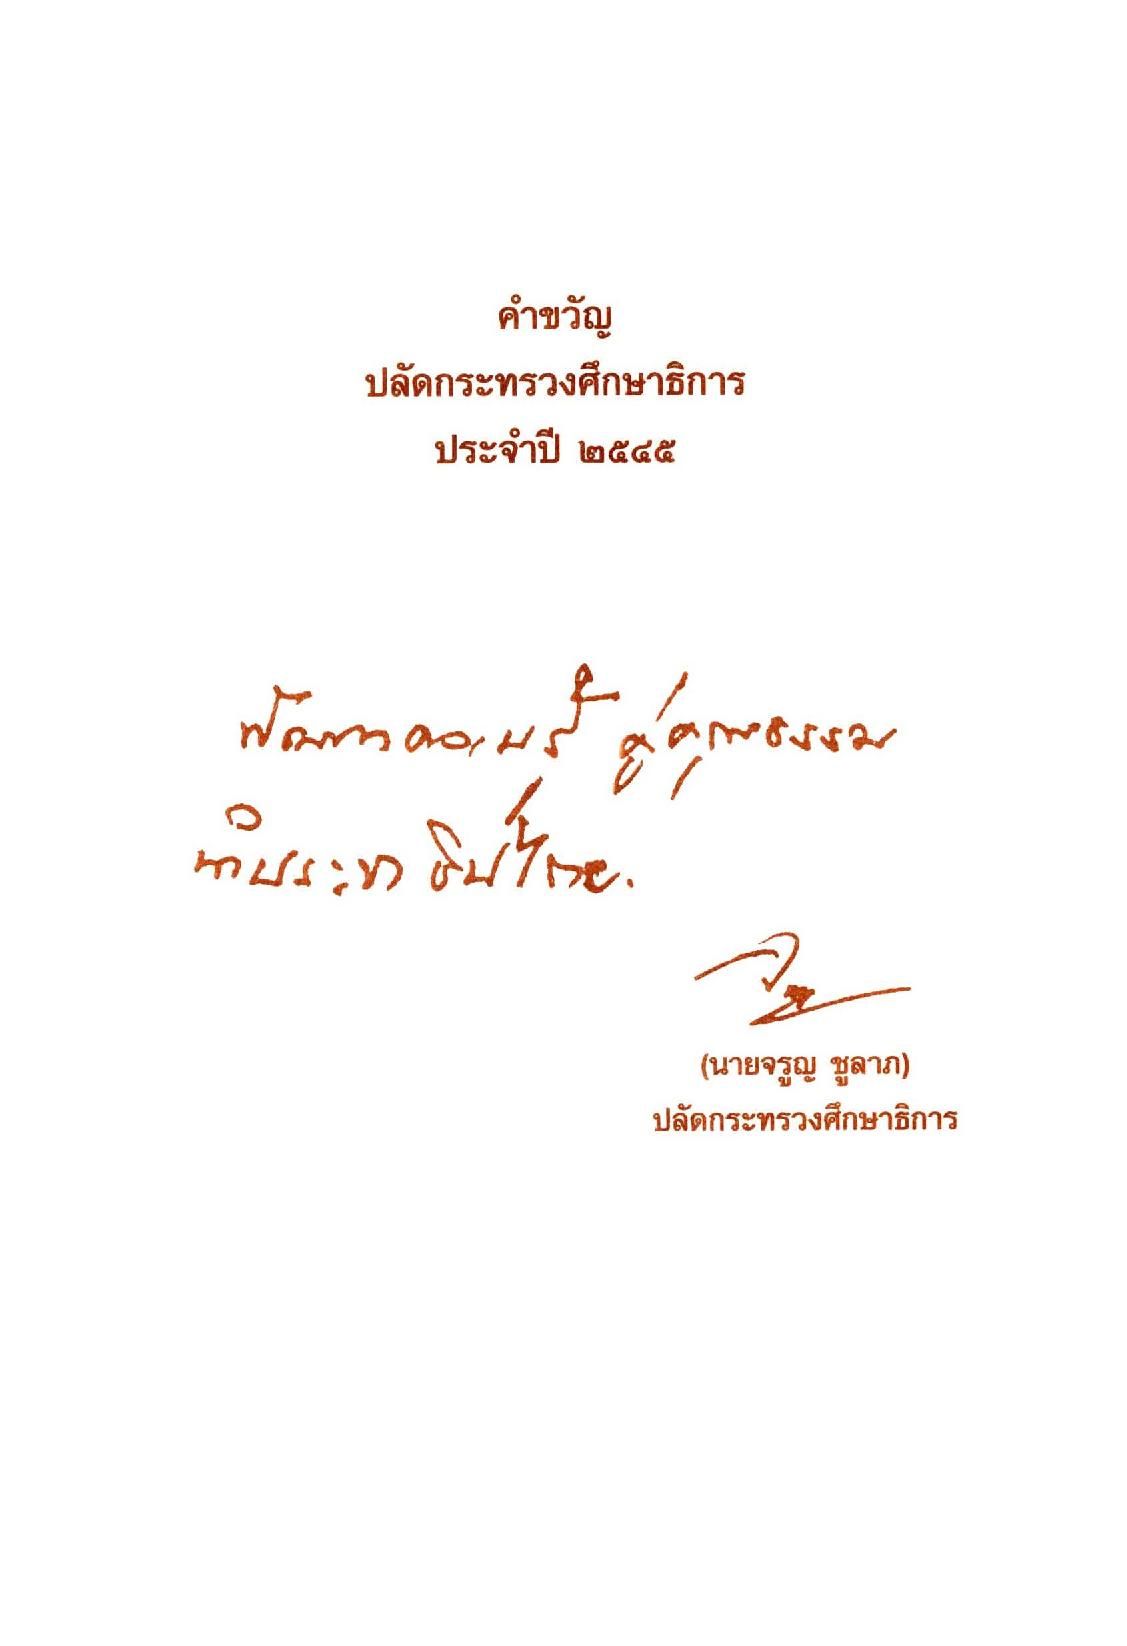 คำขวัญ
ปลัดกระทรวงศึกษาธิการ
ประจำปี ๒๕๔๕
พัฒนาความรู้ คู่คุณธรรม
นำประชาธิปไตย.
(นายจรูญ ชูลาภ)
ปลัดกระทรวงศึกษาธิการ